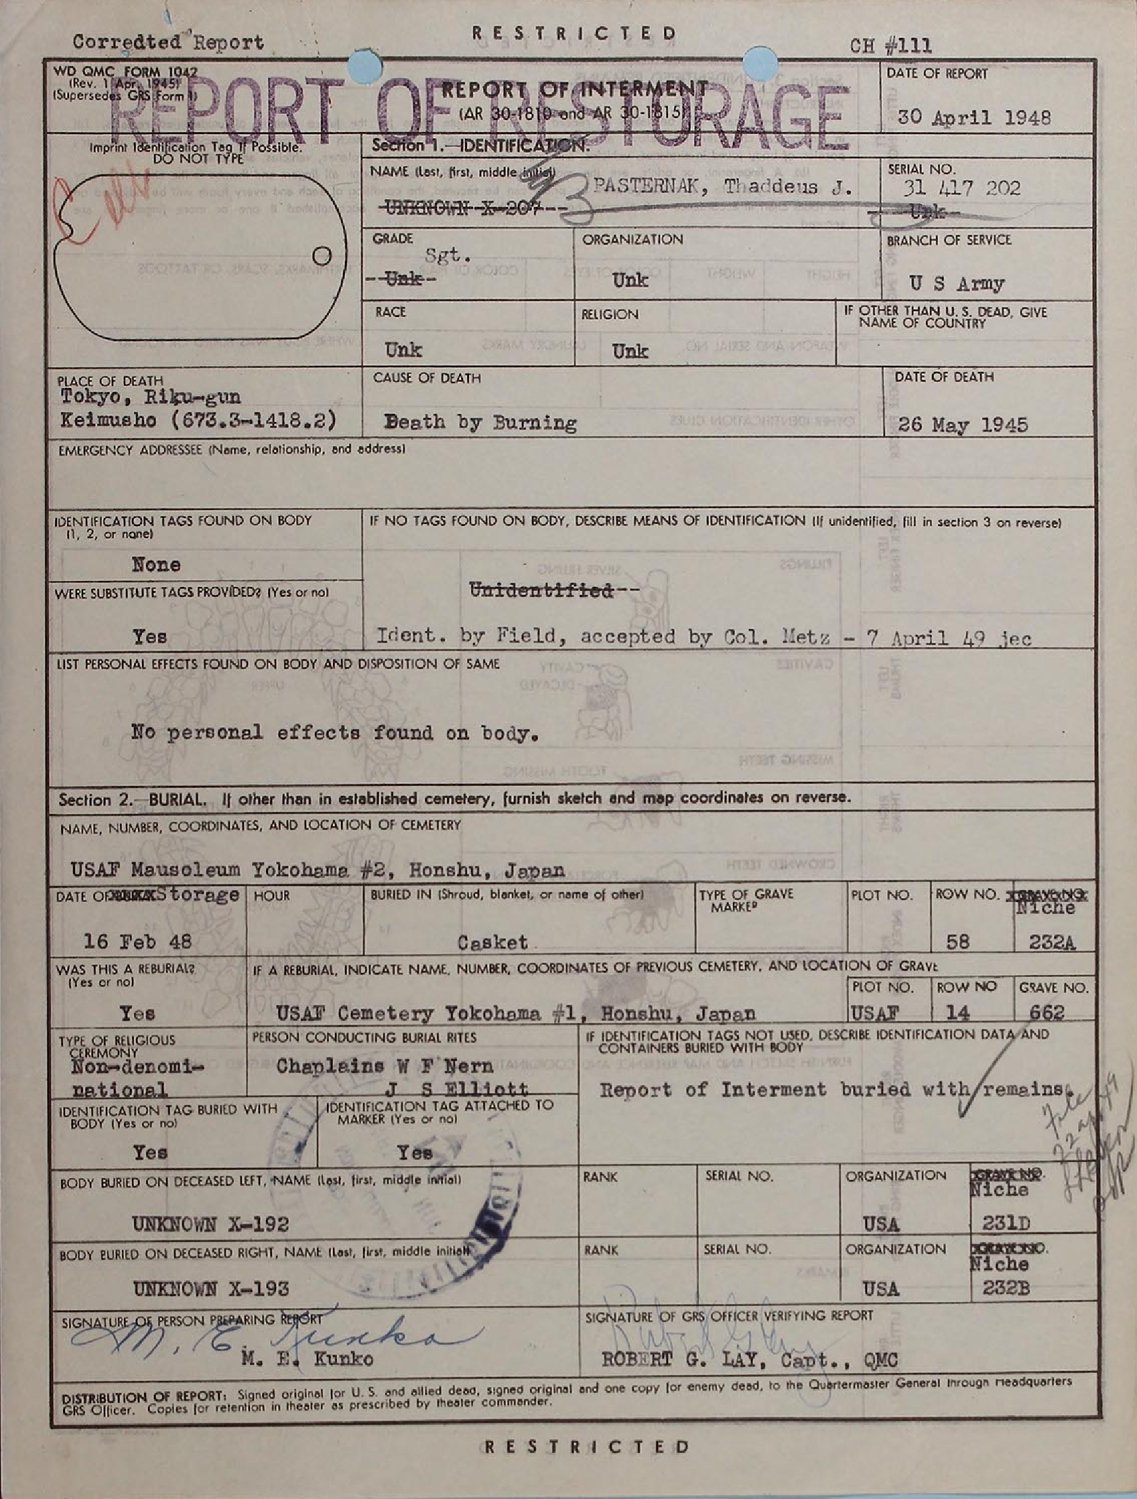 RESTRICTED
Corredted Report
CH #111
WD QMC FORM 1042
(Rev. 1 Apr. 1945)
(Supersedes GRS Form 1)
REPORT OF RESTORAGE
REPORT OF INTERMENT
(AR 30-1810 and AR 30-1815)
DATE OF REPORT
30 April 1948
Imprint Identification Tag If Possible.
DO NOT TYPE
Section 1.—IDENTIFICATION.
NAME (Last, first, middle initial)
PASTERNAK, Thaddeus J.
UNKNOWN X-207
SERIAL NO.
31 417 202
Unk
GRADE
Sgt.
Unk
ORGANIZATION
Unk
BRANCH OF SERVICE
U S Army
RACE
Unk
RELIGION
Unk
IF OTHER THAN U. S. DEAD, GIVE
NAME OF COUNTRY
PLACE OF DEATH
Tokyo, Riku-gun
Keimusho (673.3-1418.2)
CAUSE OF DEATH
Death by Burning
DATE OF DEATH
26 May 1945
EMERGENCY ADDRESSEE (Name, relationship, and address)
IDENTIFICATION TAGS FOUND ON BODY
(1, 2, or none)
None
IF NO TAGS FOUND ON BODY, DESCRIBE MEANS OF IDENTIFICATION (If unidentified, fill in section 3 on reverse)
Unidentified--
Ident. by Field, accepted by Col. Metz - 7 April 49 jec
WERE SUBSTITUTE TAGS PROVIDED? (Yes or no)
Yes
LIST PERSONAL EFFECTS FOUND ON BODY AND DISPOSITION OF SAME
No personal effects found on body.
Section 2.—BURIAL. If other than in established cemetery, furnish sketch and map coordinates on reverse.
NAME, NUMBER, COORDINATES, AND LOCATION OF CEMETERY
USAF Mausoleum Yokohama #2, Honshu, Japan
DATE OF Storage
16 Feb 48
HOUR
BURIED IN (Shroud, blanket, or name of other)
Casket
TYPE OF GRAVE
MARKER
PLOT NO.
ROW NO.
58
GRAVE NO.
Niche
232A
WAS THIS A REBURIAL?
(Yes or no)
Yes
IF A REBURIAL, INDICATE NAME, NUMBER, COORDINATES OF PREVIOUS CEMETERY, AND LOCATION OF GRAVE
USAF Cemetery Yokohama #1, Honshu, Japan
PLOT NO.
USAF
ROW NO
14
GRAVE NO.
662
TYPE OF RELIGIOUS
CEREMONY
Non-denomi-
national
PERSON CONDUCTING BURIAL RITES
Chaplains W F Nern
J S Elliott
IF IDENTIFICATION TAGS NOT USED, DESCRIBE IDENTIFICATION DATA AND
CONTAINERS BURIED WITH BODY
Report of Interment buried with remains.
IDENTIFICATION TAG BURIED WITH
BODY (Yes or no)
Yes
IDENTIFICATION TAG ATTACHED TO
MARKER (Yes or no)
Yes
BODY BURIED ON DECEASED LEFT, NAME (Last, first, middle initial)
UNKNOWN X-192
RANK
SERIAL NO.
ORGANIZATION
USA
GRAVE NO.
Niche
231D
BODY BURIED ON DECEASED RIGHT, NAME (Last, first, middle initial)
UNKNOWN X-193
RANK
SERIAL NO.
ORGANIZATION
USA
Niche
232B
SIGNATURE OF PERSON PREPARING REPORT
M. E. Kunko
M. E. Kunko
SIGNATURE OF GRS OFFICER VERIFYING REPORT
ROBERT G. LAY, Capt., QMC
DISTRIBUTION OF REPORT: Signed original for U. S. and allied dead, signed original and one copy for enemy dead, to the Quartermaster General through Headquarters
GRS Officer. Copies for retention in theater as prescribed by theater commander.
RESTRICTED